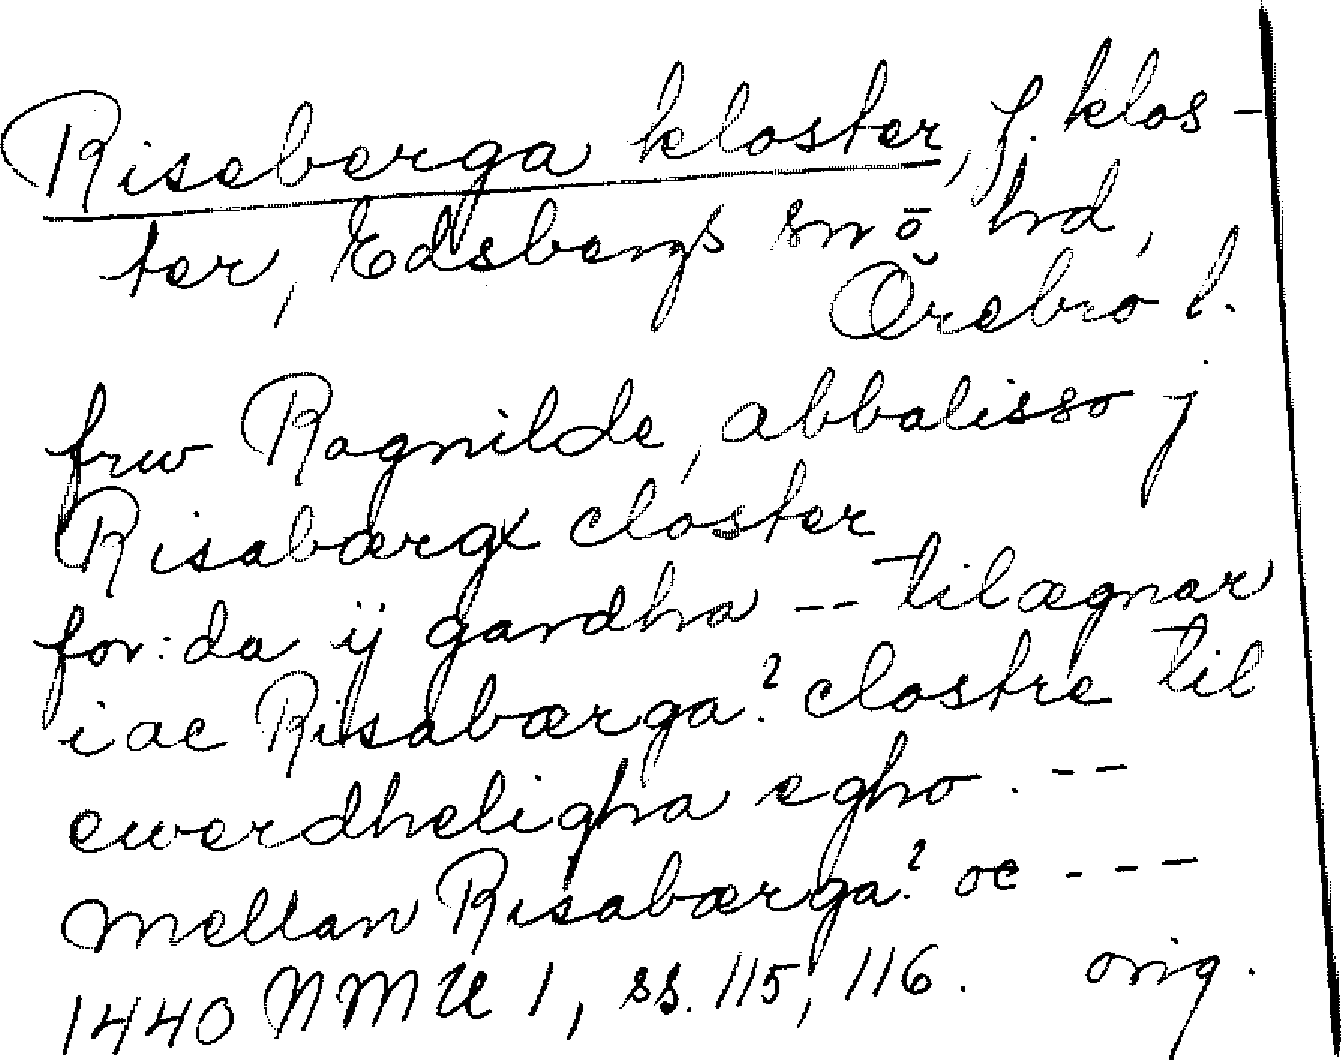 Riseberga kloster, f. klos-
ter, Edsbergs snö hd,
Örebro l.
frw Ragnilde, abbatisso j
Risabærgx closter
for:da ij gardha -- tilægnar
iac Risabærga? clostre til
ewerdheligha egho. --
mellan Risabærga? oc ---
1440 NMU 1, ss. 115, 116. orig.